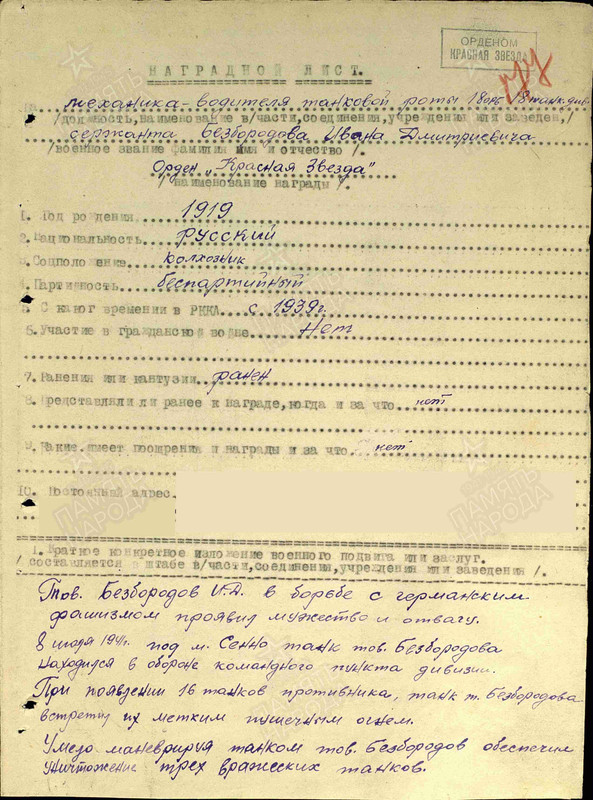 ОРДЕНОМ
КРАСНАЯ ЗВЕЗДА
НАГРАДНОЙ ЛИСТ.
механика-водителя танковой роты 18 танк. див.
/должность, наименование в/части, соединения, учреждения или заведен./
сержанта Безбородова Ивана Дмитриевича
/военное звание фамилия имя и отчество/.
Орден „Красная Звезда"
/наименование награды/.
1. Год рождения. 1919
2. Национальность. русский
3. Соцположение. колхозник
4. Партийность. беспартийный
5. С какого времени в РККА. с 1939г.
6. Участие в гражданской войне. Нет
7. Ранения или кантузии. ранен
8. Представляли ли ранее к награде, когда и за что. нет
9. Какие имеет поощрения и награды и за что. нет
10. Постоянный адрес.
1. Краткое конкретное изложение военного подвига или заслуг.
/составляется в штабе в/части, соединения, учреждения или заведения/.
Тов. Безбородов И.Д. в борьбе с германским
фашизмом проявил мужество и отвагу.
8 июля 1941г. под м. Сенно танк тов. Безбородова
находился в обороне командного пункта дивизии.
При появлении 16 танков противника, танк т. Безбородова
встретил их метким пушечным огнем.
Умело маневрируя танком тов. Безбородов обеспечил
уничтожение трех вражеских танков.
ПАМЯТЬ
НАРОДА